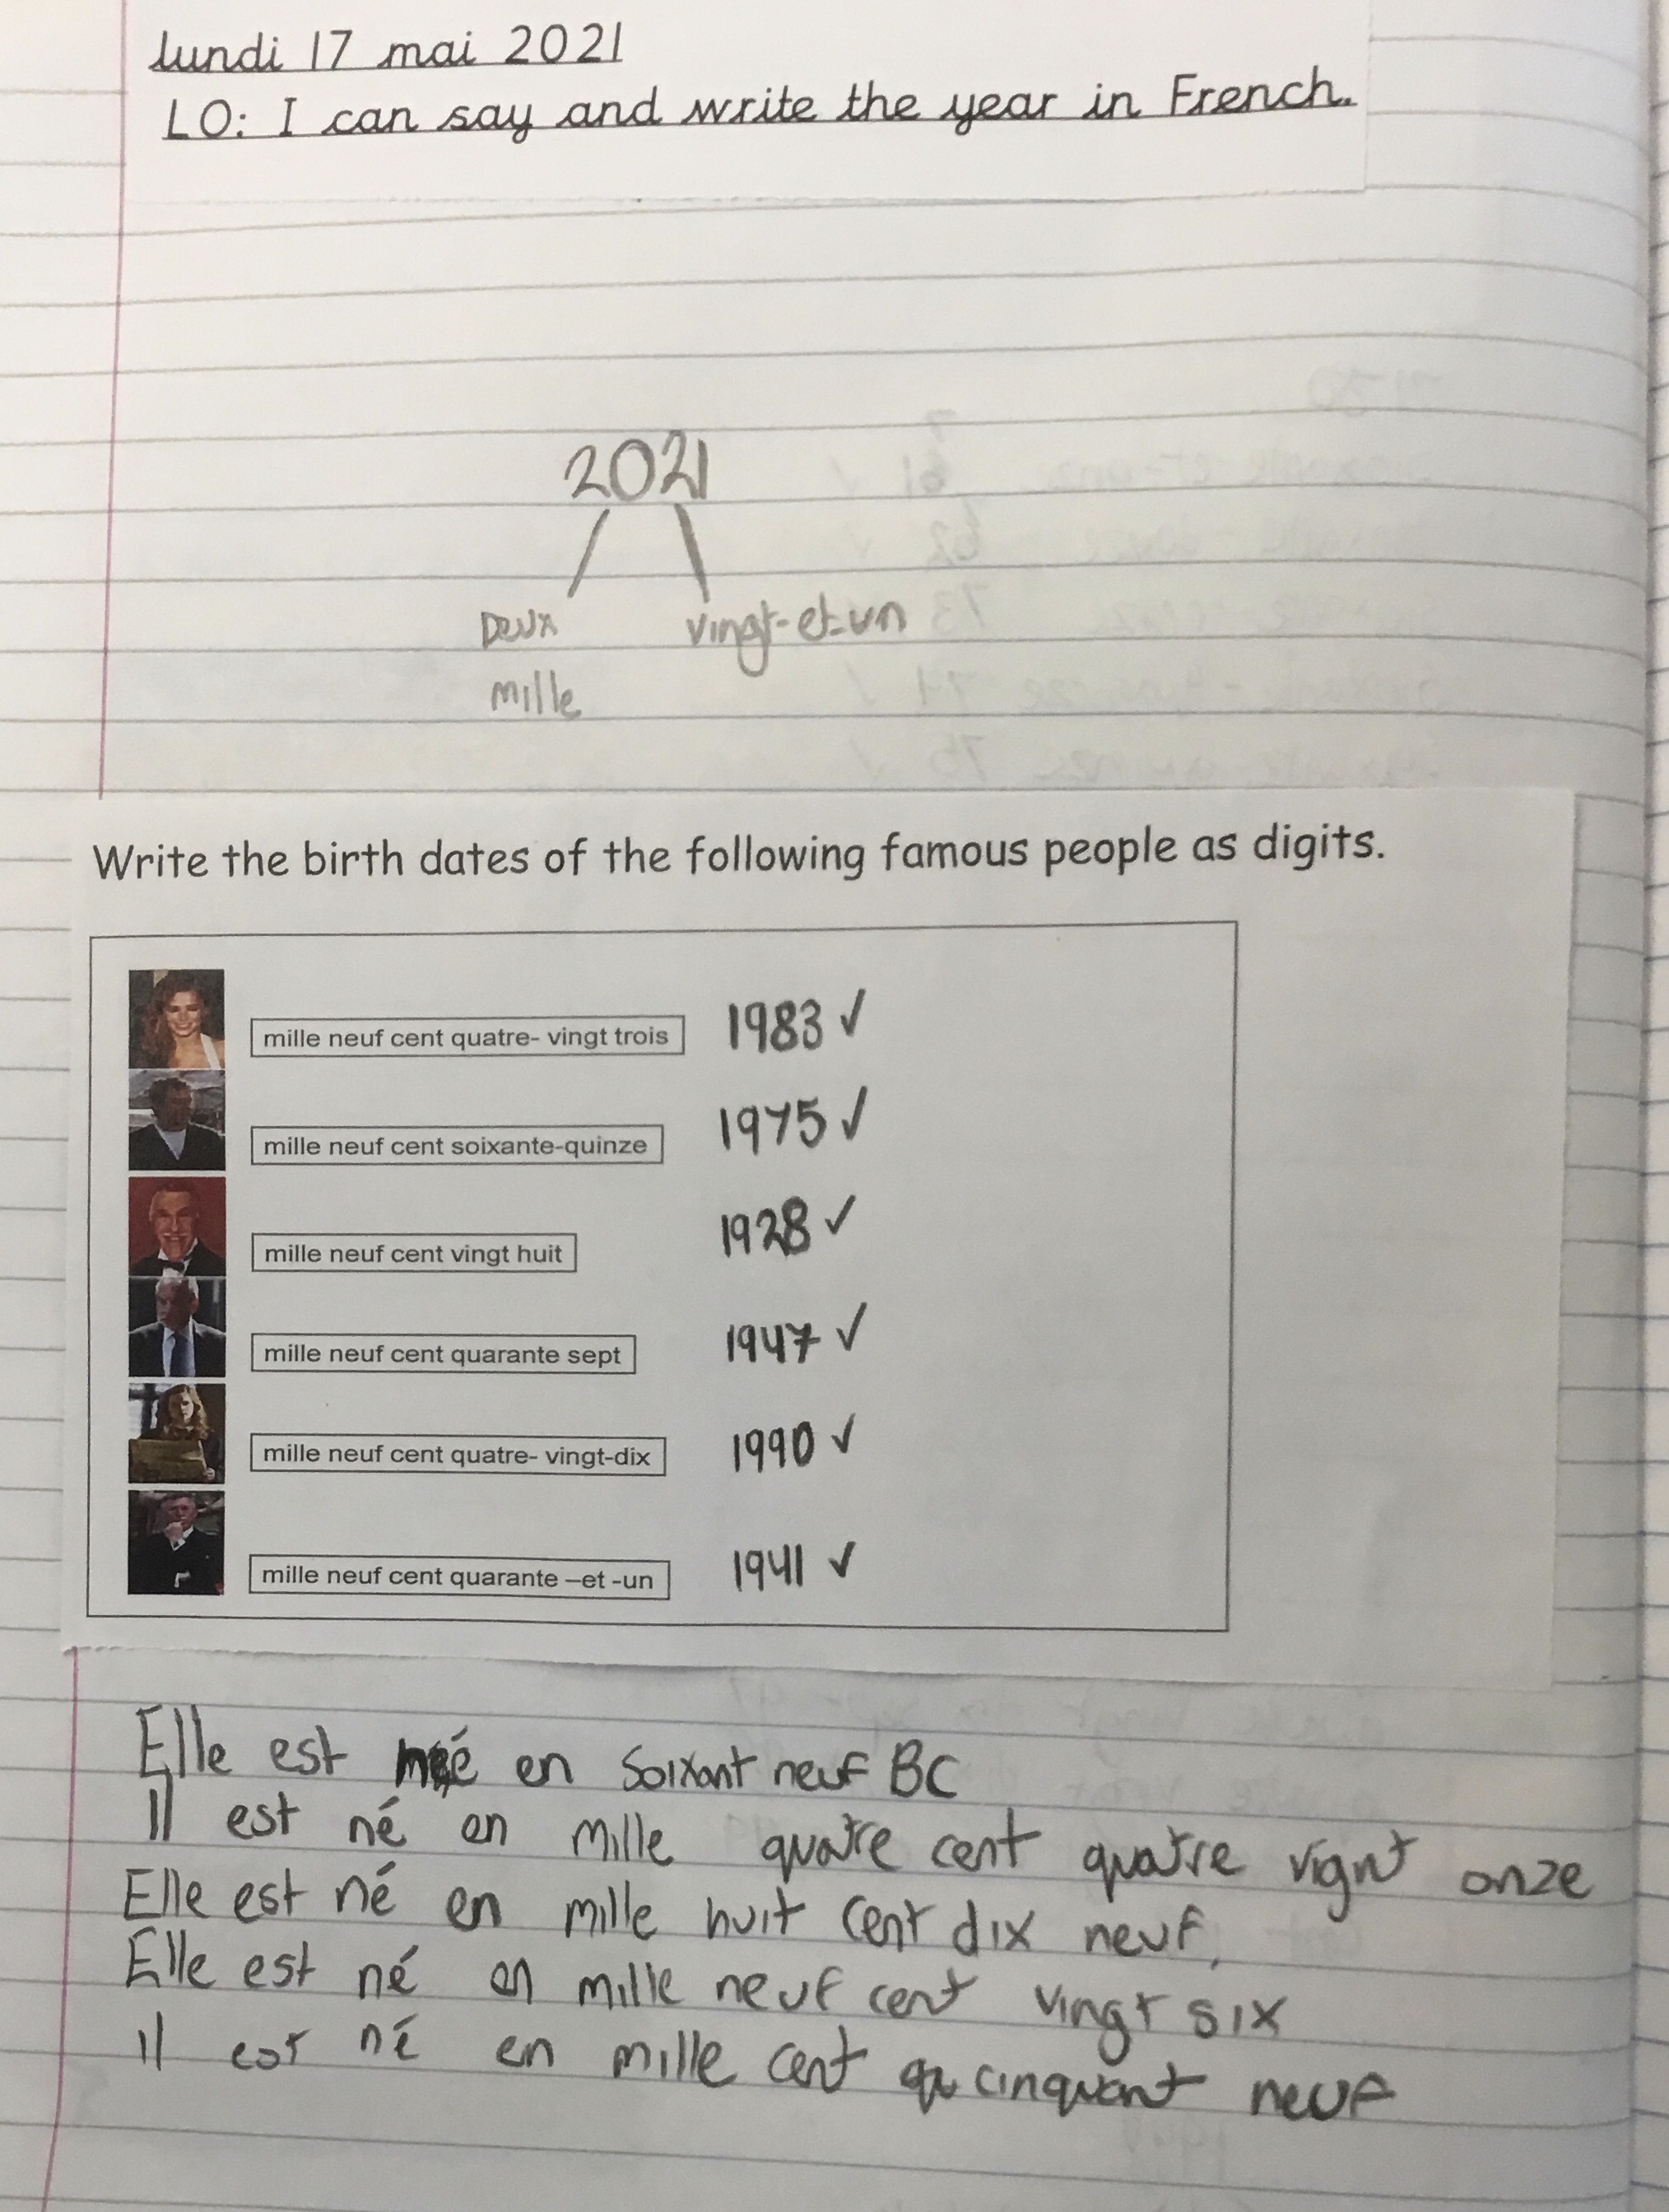 lundi 17 mai 2021
LO: I can say and write the year in French.
2021
Deux vingt-et-un
mille
Write the birth dates of the following famous people as digits.
mille neuf cent quatre- vingt trois 1983 ✓
mille neuf cent soixante-quinze 1975 ✓
mille neuf cent vingt huit 1928 ✓
mille neuf cent quarante sept 1947 ✓
mille neuf cent quatre- vingt-dix 1990 ✓
mille neuf cent quarante –et -un 1941 ✓
Elle est né en Soixant neuf BC
Il est né en mille quatre cent quatre vignt onze
Elle est né en mille huit cent dix neuf.
Elle est né en mille neuf cent vingt six
il est né en mille cent cinquant neuf